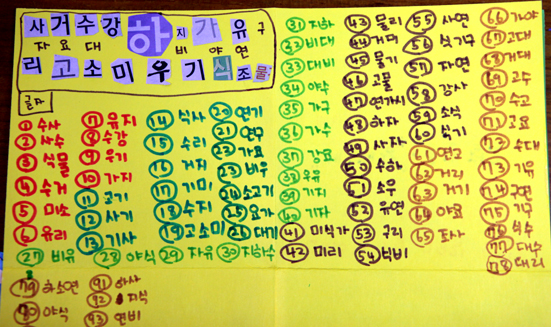 사거수강하지가유구
자요대 비야연
리고소미우기식조물
글자
① 수사
② 사수
③ 식물
④ 수거
⑤ 미소
⑥ 유리
⑦ 유지
⑧ 수강
⑨ 우기
⑩ 가지
⑪ 고기
⑫ 사기
⑬ 기사
⑭ 식사
⑮ 수리
⑯ 거지
⑰ 기미
⑱ 수지
⑲ 고소미
⑳ 연기
㉑ 연구
㉒ 가요
㉓ 비우
㉔ 소고기
㉕ 요가
㉖ 대기
㉗ 비유
㉘ 야식
㉙ 자유
㉚ 지하수
㉛ 지하
㉜ 비대
㉝ 대비
㉞ 야식
㉟ 가구
㊱ 가수
㊲ 강요
㊳ 우유
㊴ 기지
㊵ 기자
㊶ 미식가
㊷ 미리
㊸ 물리
㊹ 거미
㊺ 물기
㊻ 고물
㊼ 연가시
㊽ 하자
㊾ 사자
㊿ 수하
51 소우
52 유연
53 구리
54 식비
55 사연
56 식기구
57 자연
58 강사
59 소식
60 식기
61 연고
62 거리
63 거기
64 야요
65 조사
66 가야
67 고대
68 거대
69 고수
70 수고
71 고요
72 수대
73 기유
74 구연
75 기구
76 식수
77 대수
78 대리
79 하소연
80 야식
91 하사
92 지식
93 연비